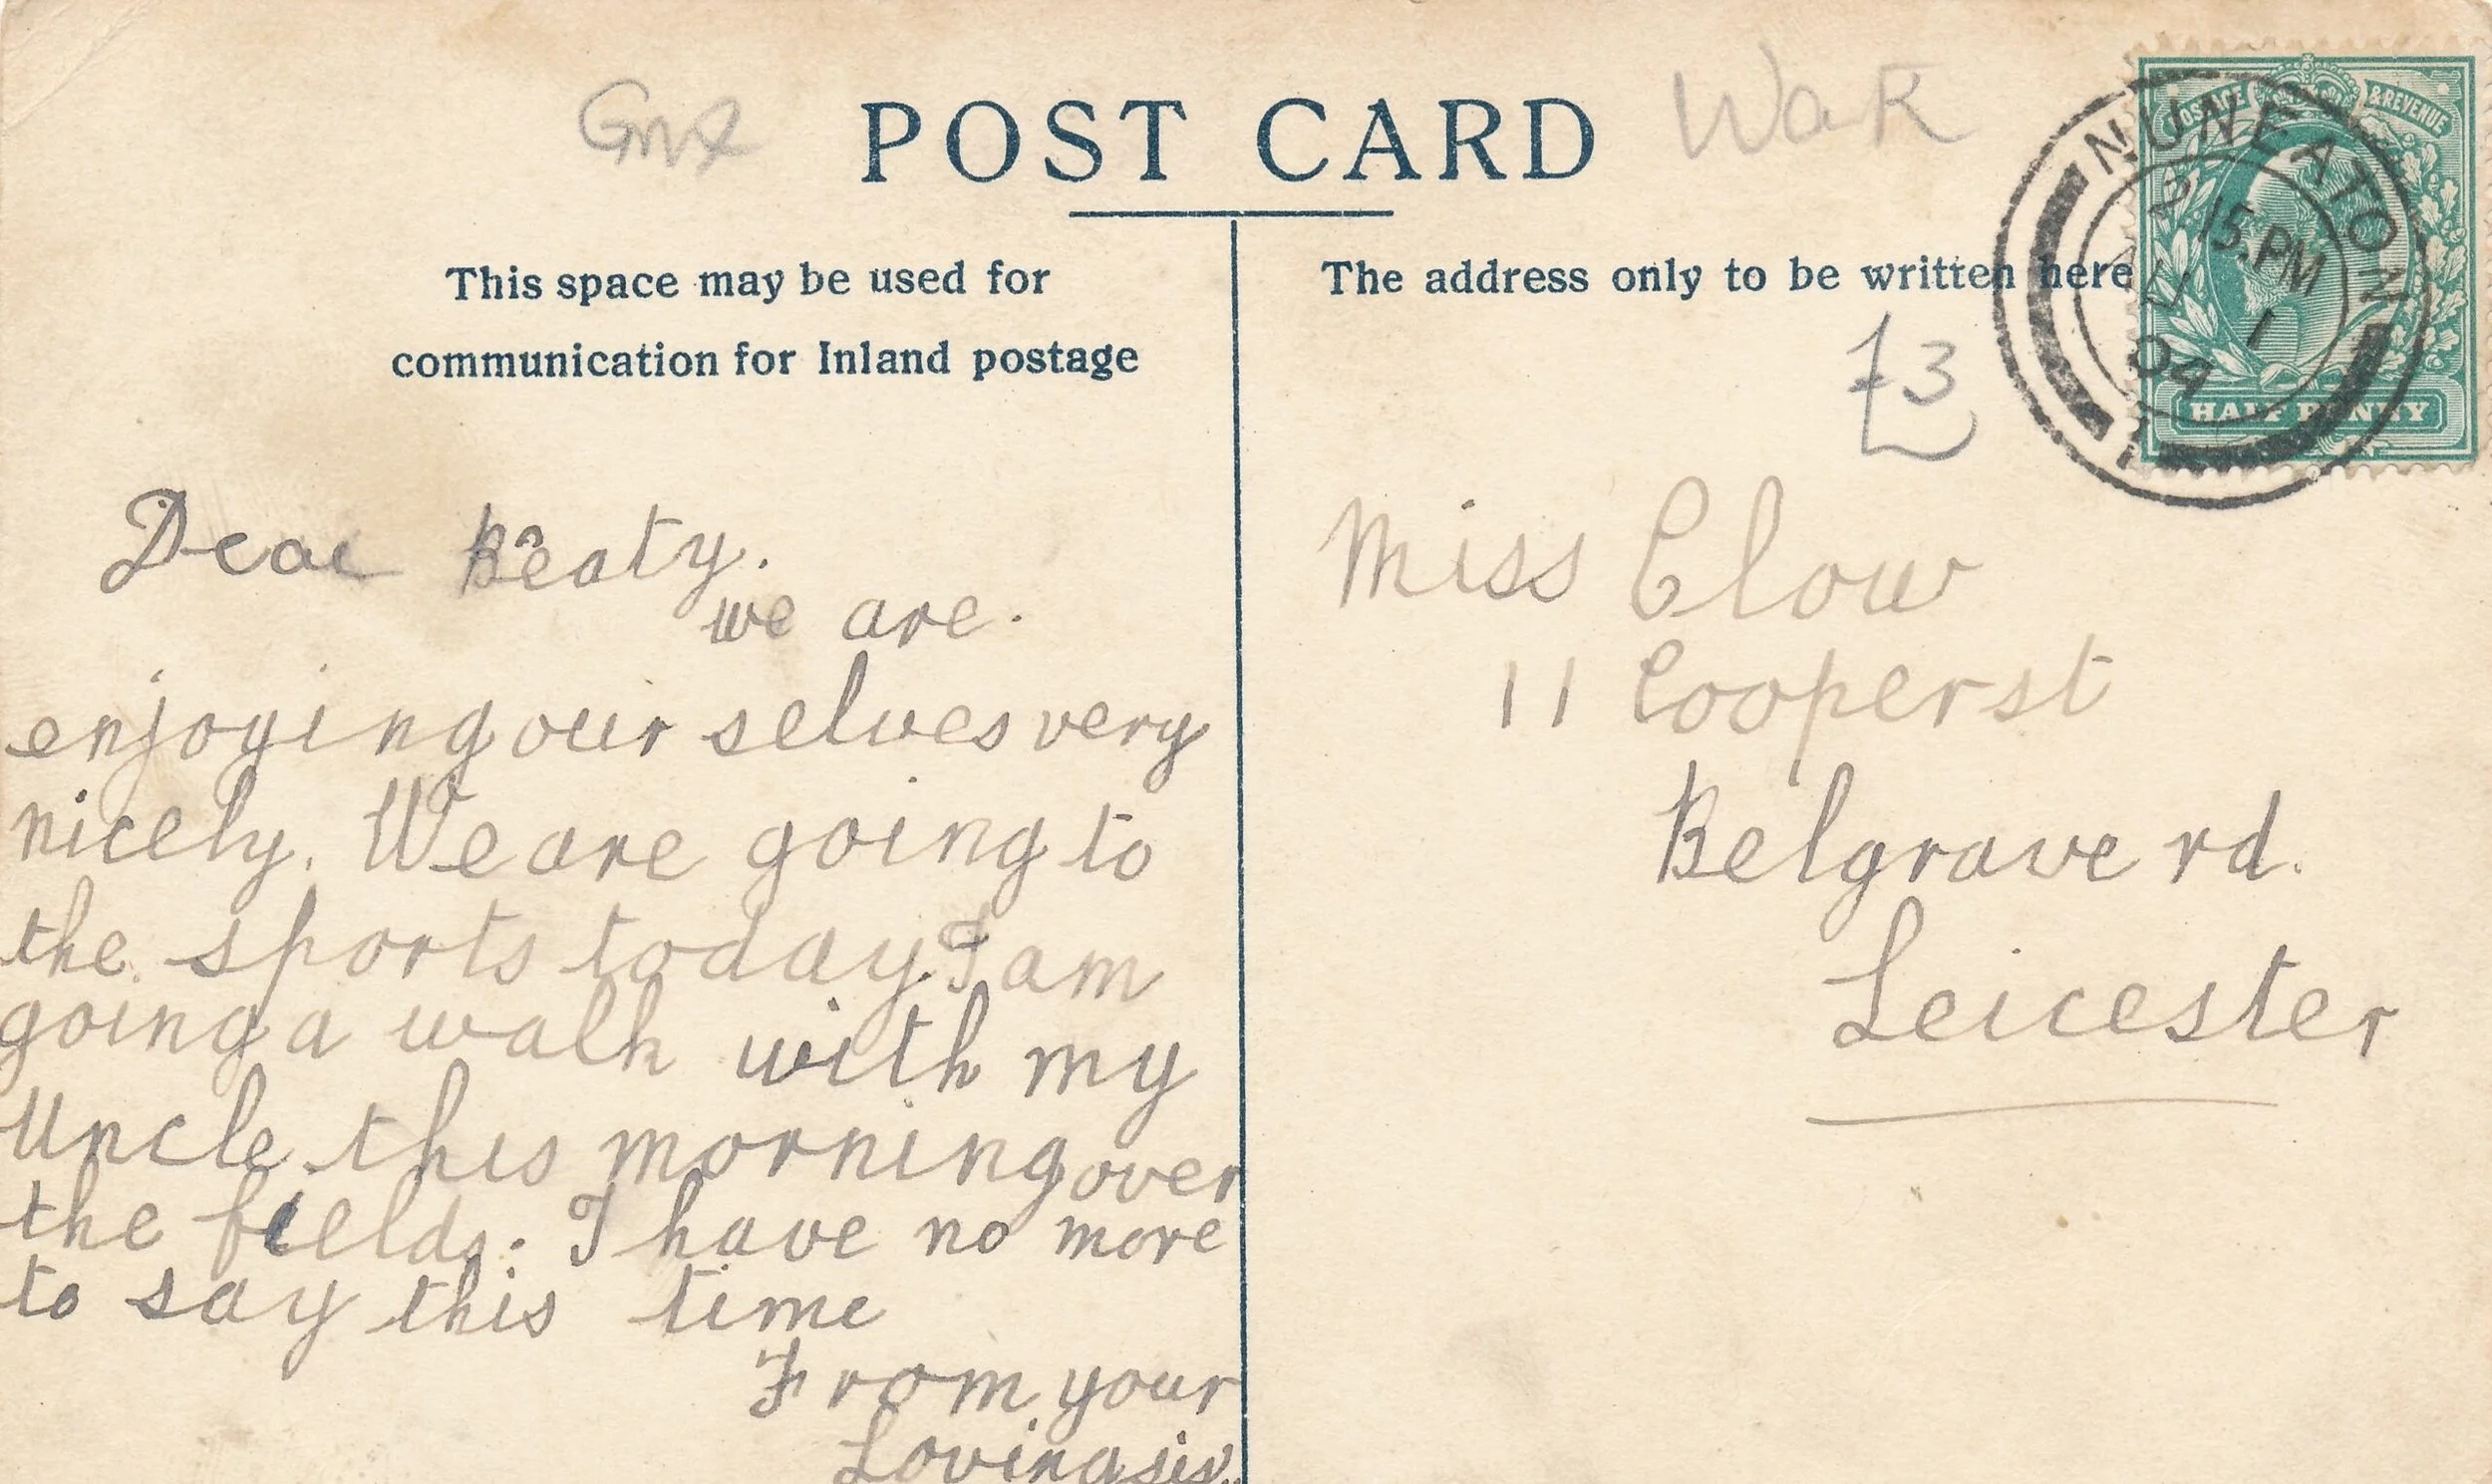 POST CARD
WaR
This space may be used for
communication for Inland postage
The address only to be written here
POSTAGE & REVENUE
HALF PENNY
NUNEATON
2 15 PM
AU 1
04
£3
Dear Beaty.
we are.
enjoying our selves very
nicely. We are going to
the sports today. I am
going a walk with my
Uncle this morning over
the fields. I have no more
to say this time
From your
Loving sis
Miss Clow
11 Cooper st
Belgrave rd.
Leicester